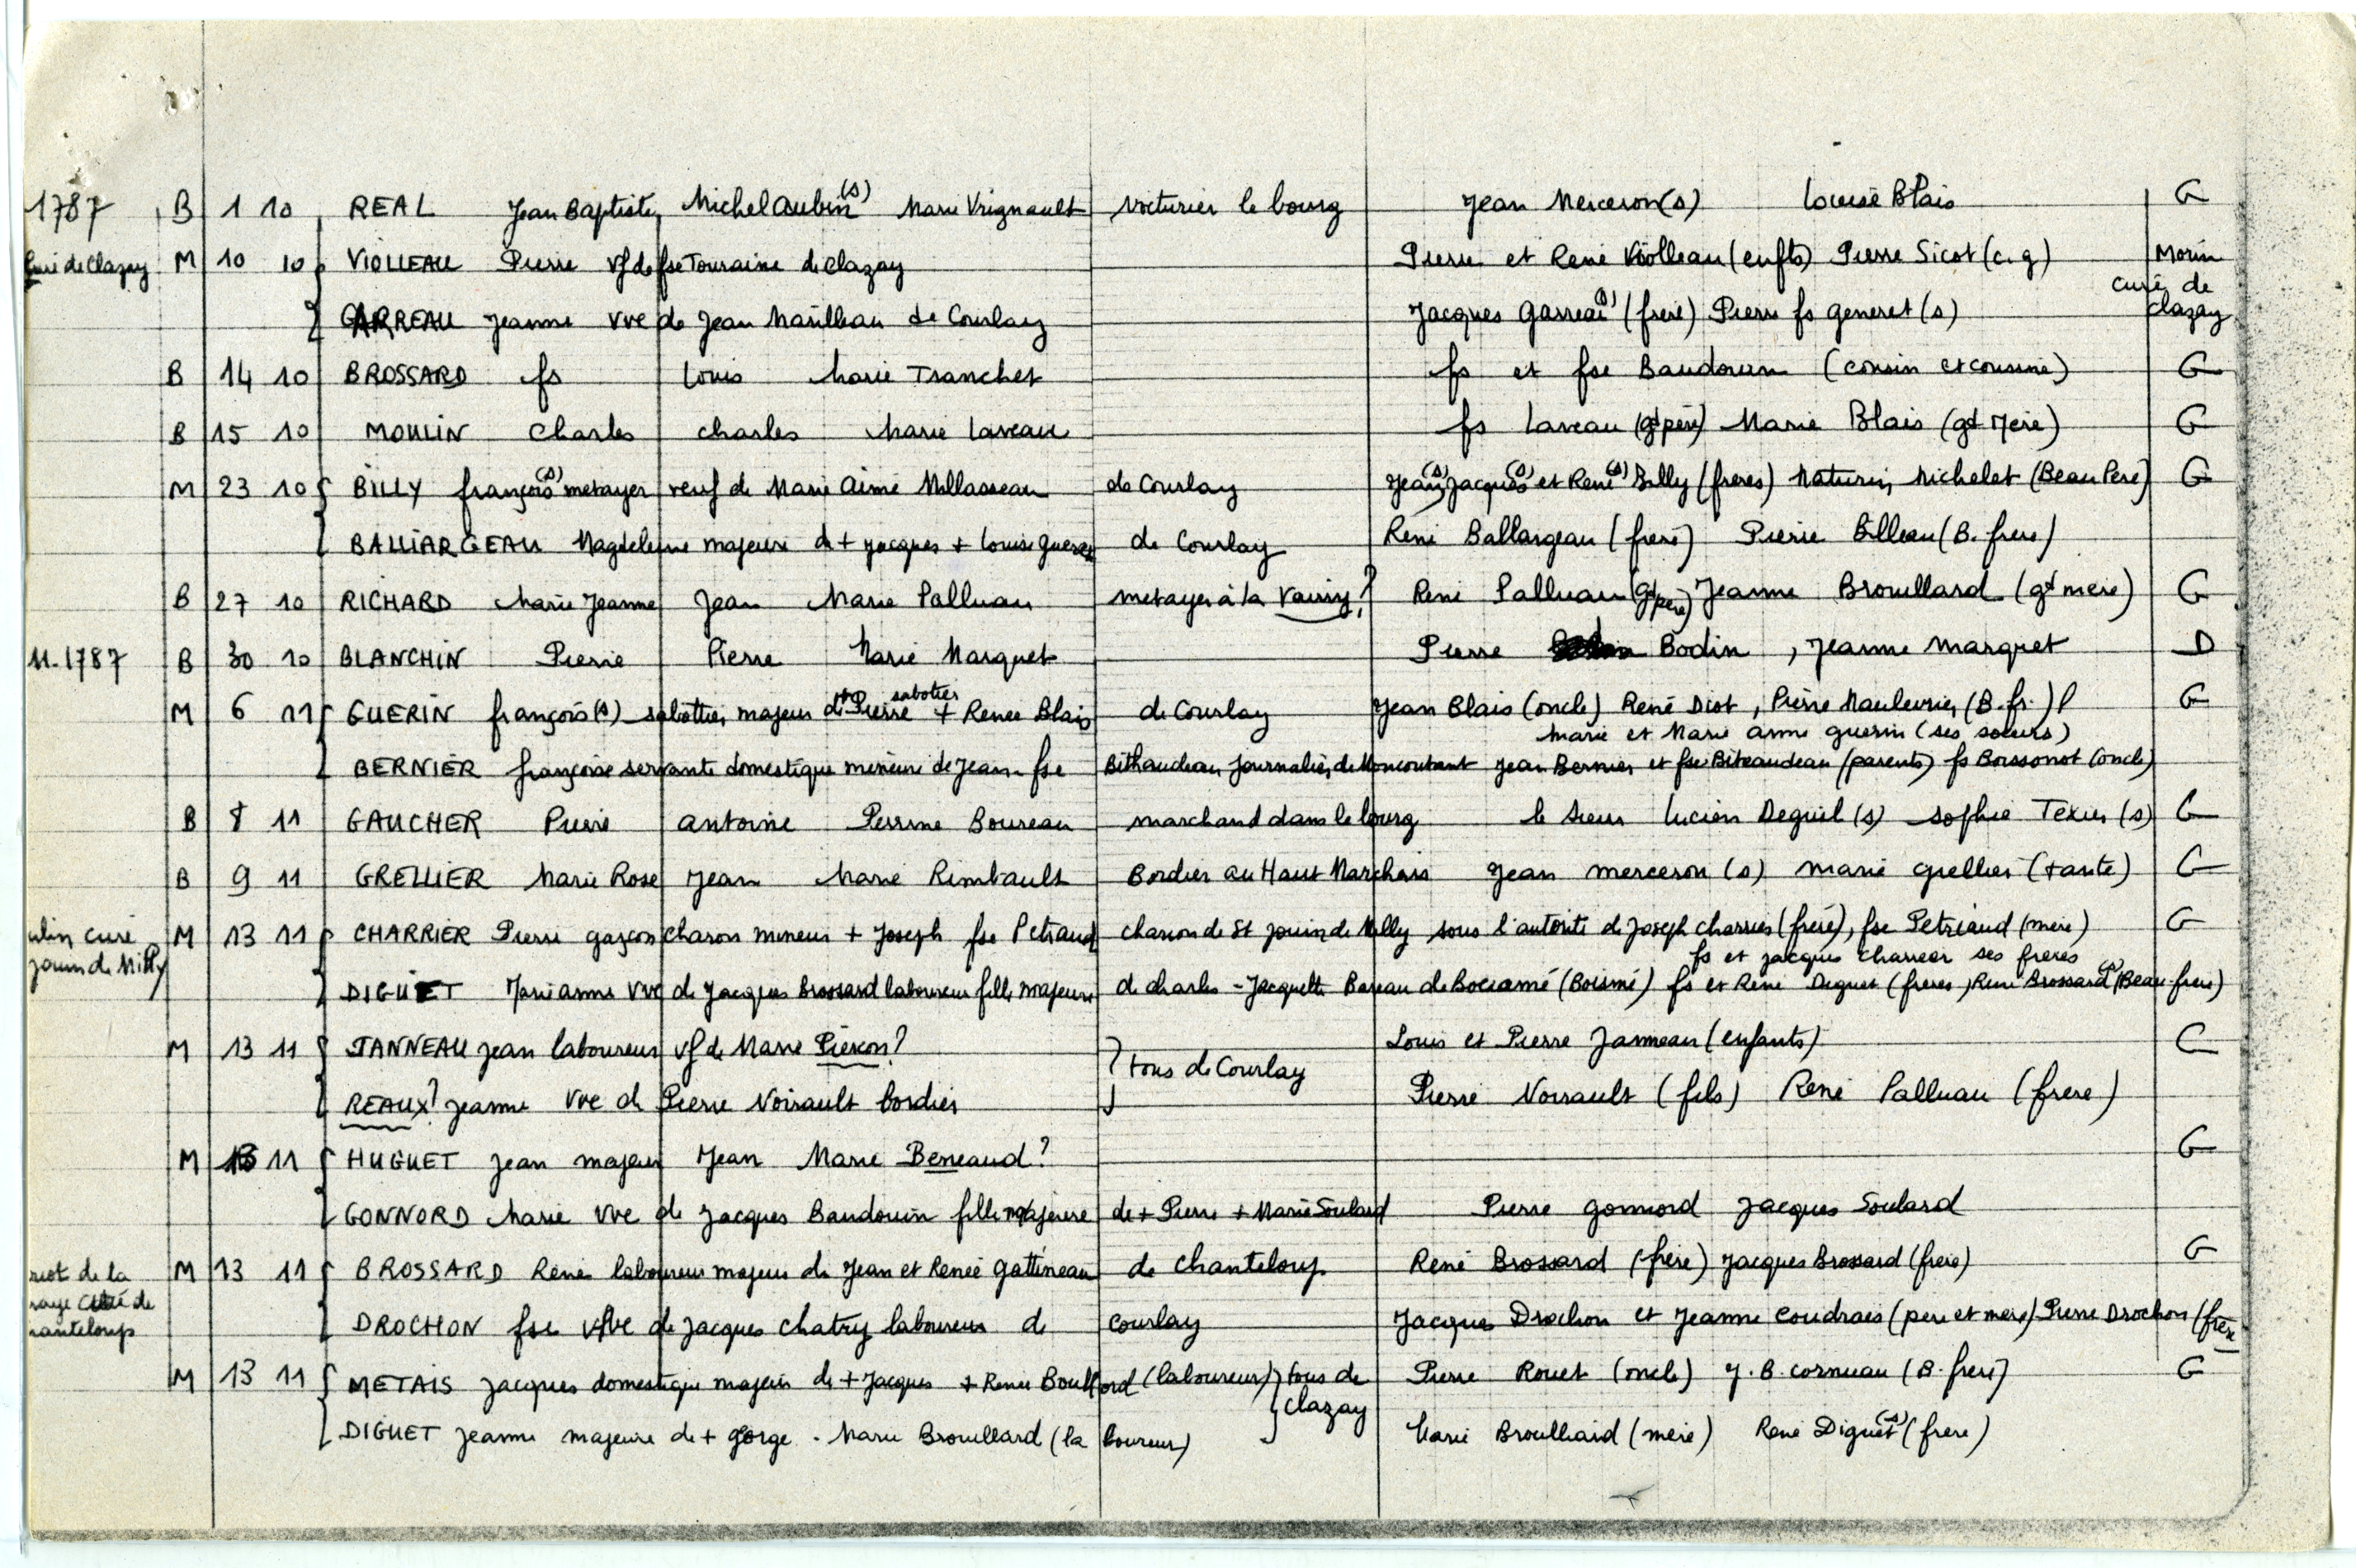 1787 B 1 10 REAL Jean Baptiste Michel Aubin (s) Marie Vrignault voiturier le bourg Jean Merceron (s) Louise Blais G
curé de Clazay M 10 10 VIOLLEAU Pierre vf de fse Touraine de Clazay Pierre et René Violleau (enfts) Pierre Sicot (c.g) Morin curé de clazay
GARREAU Jeanne vve de Jean Maulleau de Courlay Jacques Garreau (s) (frere) Pierre fs generet (s)
B 14 10 BROSSARD fs Louis Marie Tranchet fs et fse Baudouin (cousin et cousine) G
B 15 10 MOULIN Charles Charles Marie Laveau fs Laveau (gd père) Marie Blais (gd Mère) G
M 23 10 BILLY françois (s) metayer veuf de Marie Aimé Millasseau de Courlay Jean (s) Jacques (s) et René (s) Billy (freres) Maturin Michelet (Beau Pere) G
BALLIARGEAU Magdeleine majeure de + Jacques + Louise de Courlay René Ballargeau (frere) Pierre Billeau (B. frere)
B 27 10 RICHARD Marie Jeanne Jean Marie Palluau metayer à la Vairiy? René Palluau (gd père) Jeanne Brouillard (gd mere) G
11.1787 B 30 10 BLANCHIN Pierre Pierre Marie Marquet Pierre Bodin, Jeanne Marquet D
M 6 11 GUERIN françois (s) sabottier majeur de + Pierre sabotier + Renee Blais de Courlay Jean Blais (oncle) René Diot, Pierre Mauleurier (B. fr.) G
Marie et Marie anne guerin (ses soeurs)
BERNIER françoise servante domestique mineure de Jean - fse Bithaudeau Journalier de Moncoutant Jean Bernier et fse Biteaudeau (parents) fs Boissonot (oncle)
B 8 11 GAUCHER Pierre antoine Perrine Boureau marchand dans le bourg le sieur Lucien Deguil (s) sophie Texier (s) G
B 9 11 GRELLIER Marie Rose Jean Marie Rimbault Bordier au Haut Marchais Jean merceron (s) marie grellier (tante) G
curé M 13 11 CHARRIER Pierre garçon charon mineur + Joseph fse Petraud charron de St Jouin de Milly sous l'autorité de Joseph charrier (frère), fse Petreaud (mere) G
jouin de Milly fs et jacques charrier ses freres
DIGUET Marianne vve de Jacques Brossard laboureur fille majeure de charles - Jacquette Bareau de Bociamé (Boismé) fs et René Diguet (freres) René Brossard (s) (Beau-frere)
M 13 11 JANNEAU Jean laboureur vf de Marie Pieron? tous de Courlay Louis et Pierre Janneau (enfants) G
REAUX? Jeanne vve de Pierre Noirault bordier Pierre Noirault (fils) René Palluau (frere)
M 13 11 HUGUET Jean majeur Jean Marie Berreaud? G
GONNORD Marie vve de Jacques Baudouin fille majeure de + Pierre + Marie Soulard Pierre gonnord Jacques Soulard
M 13 11 BROSSARD René laboureur majeur de Jean et Renée gattineau de Chanteloup René Brossard (frère) Jacques Brossard (frere) G
riot de la
curé de
hanteloup
DROCHON fse vve de Jacques Chatry laboureur de Courlay Jacques Drochon et Jeanne Coudrais (pere et mere) Pierre Drochon (frere
M 13 11 METAIS Jacques domestique majeur de + Jacques + Renée Boutford (laboureur) tous de Clazay Pierre Rouet (oncle) J.B. cornuau (B. frere) G
DIGUET Jeanne majeure de + Gorge - Marie Brouillard (laboureur) Marie Broulliard (mere) René Diguet (s) (frere)